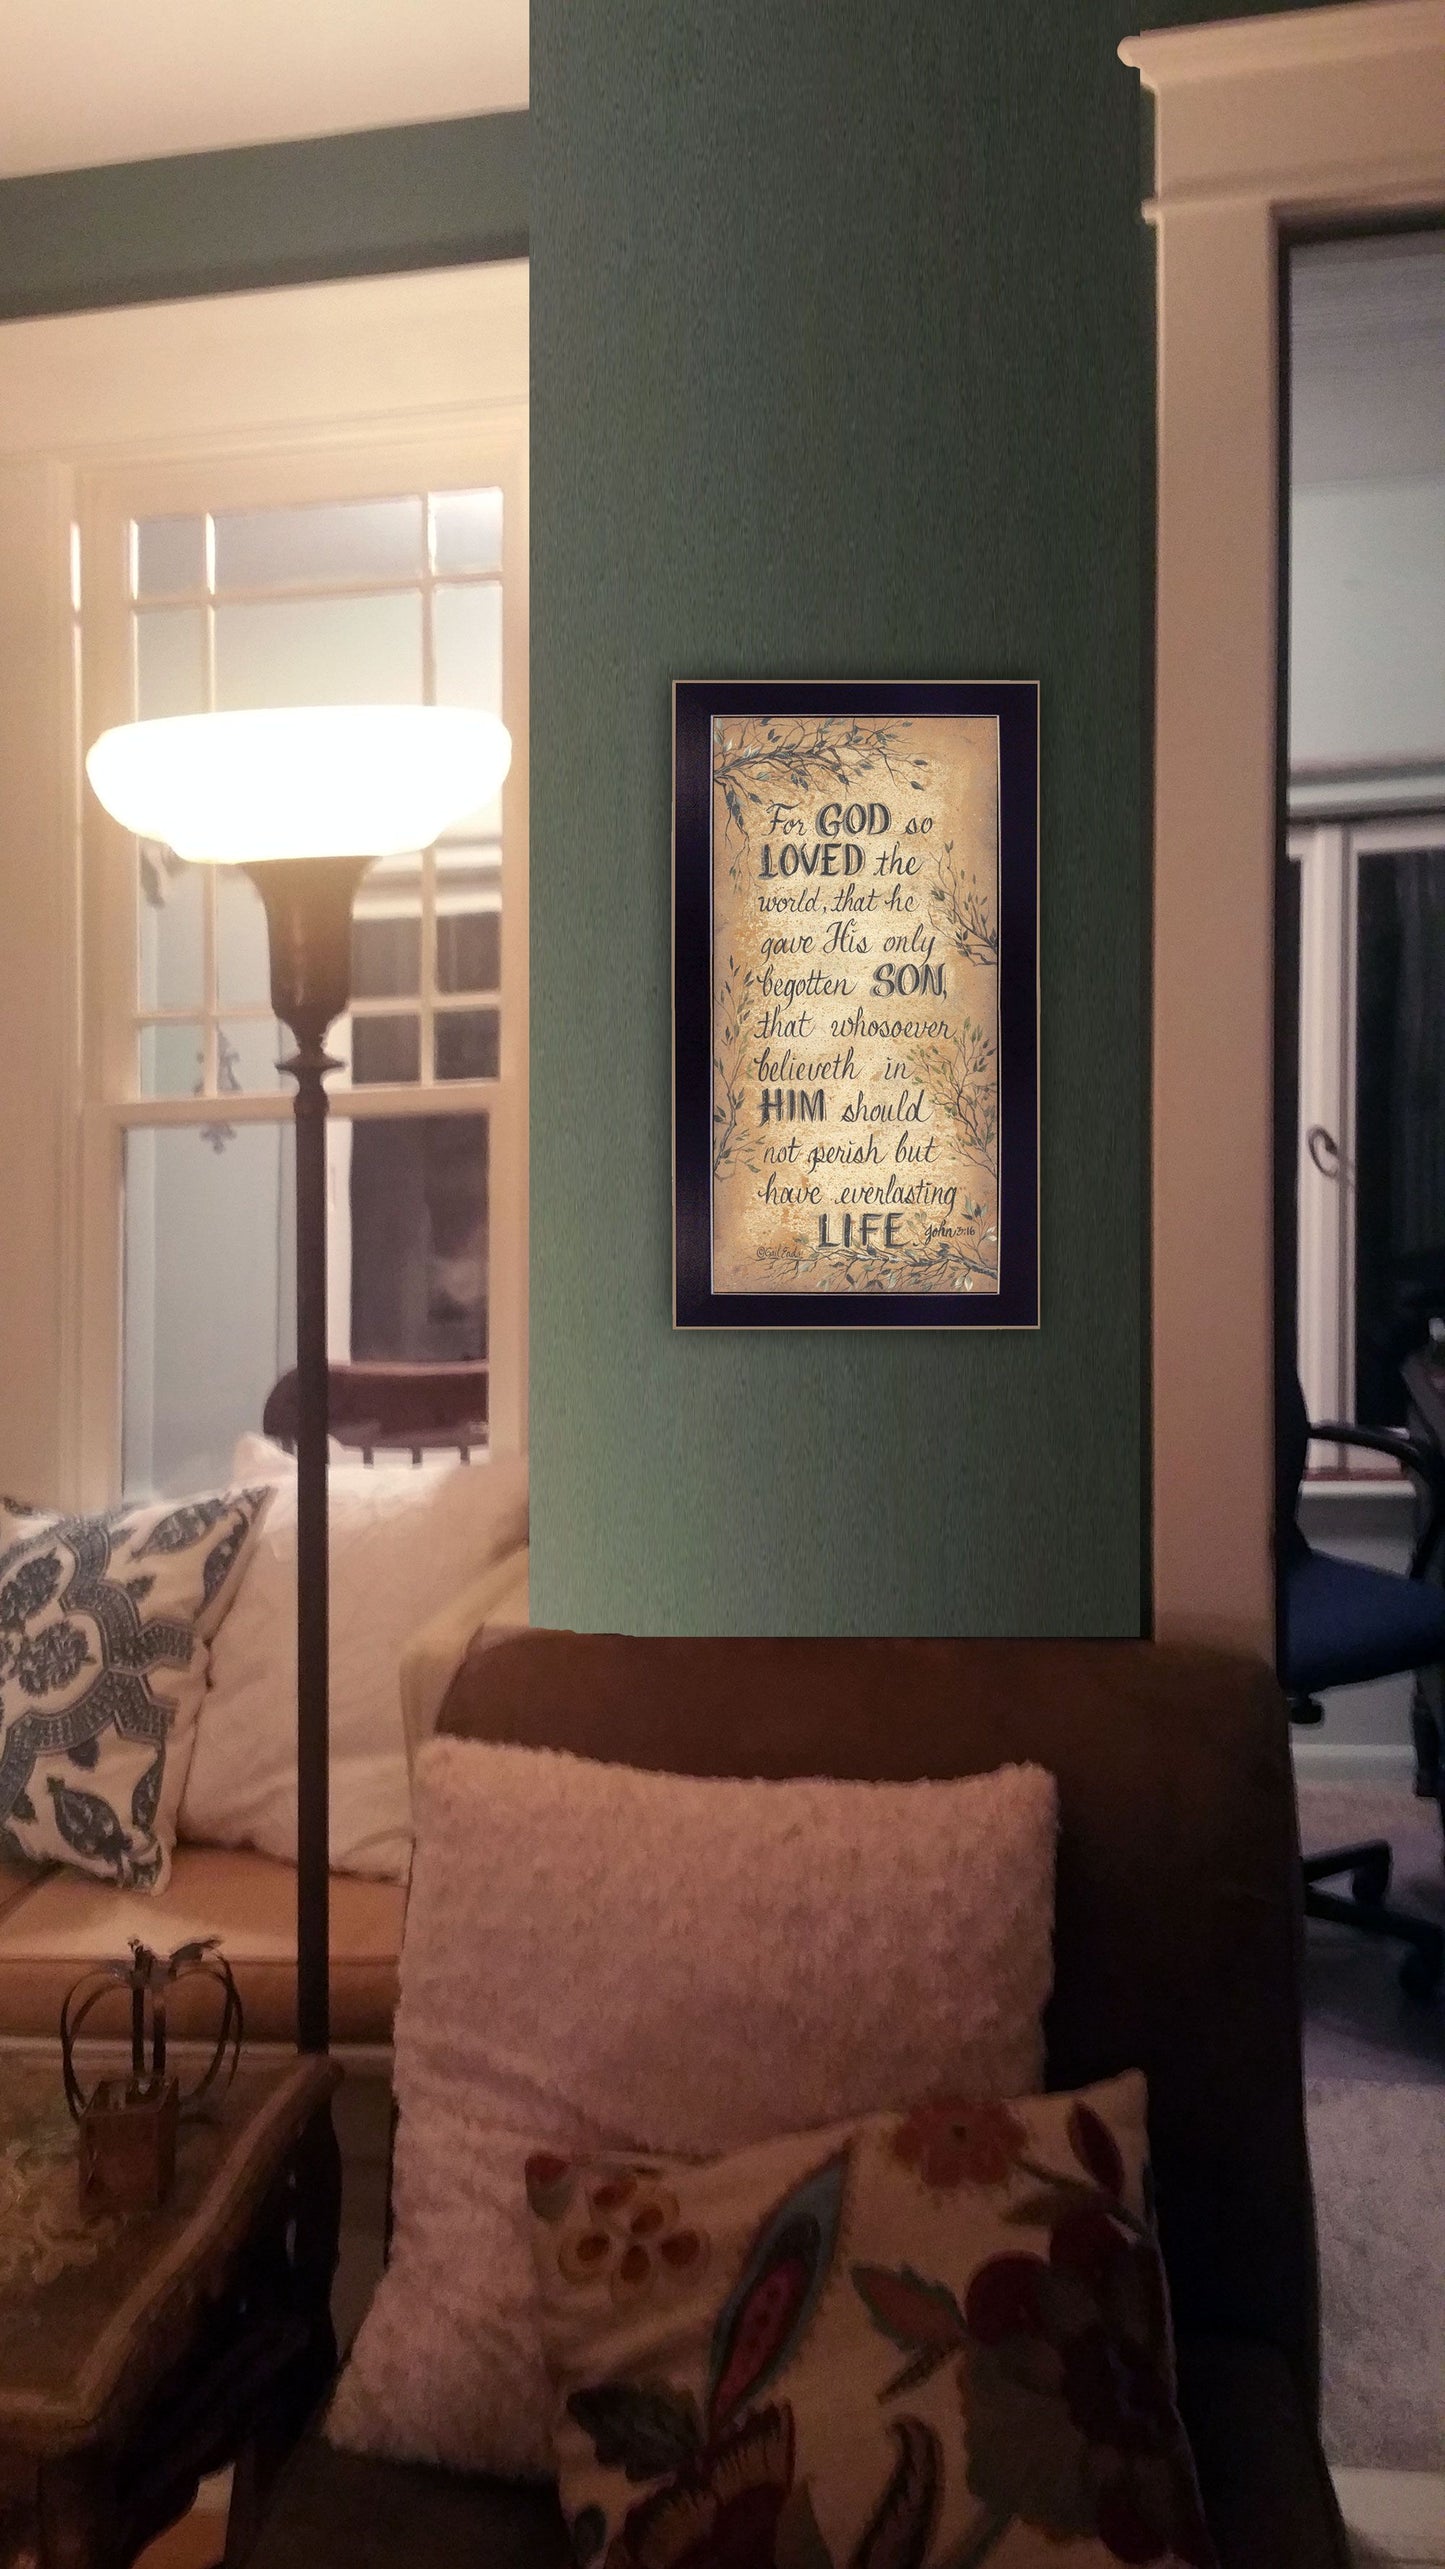 For GOD so
LOVED the
world, that he
gave His only
begotten SON,
that whosoever
believeth in
HIM should
not perish but
have everlasting
LIFE. John 3:16
©Gail Eads